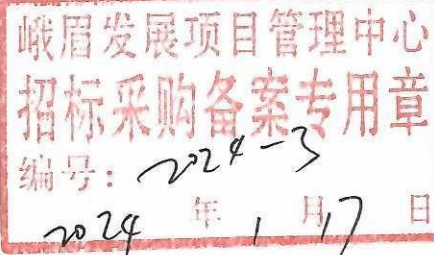 峨眉发展项目管理中心
招标采购备案专用章
编号：2024-3
2024 年 1 月 17 日